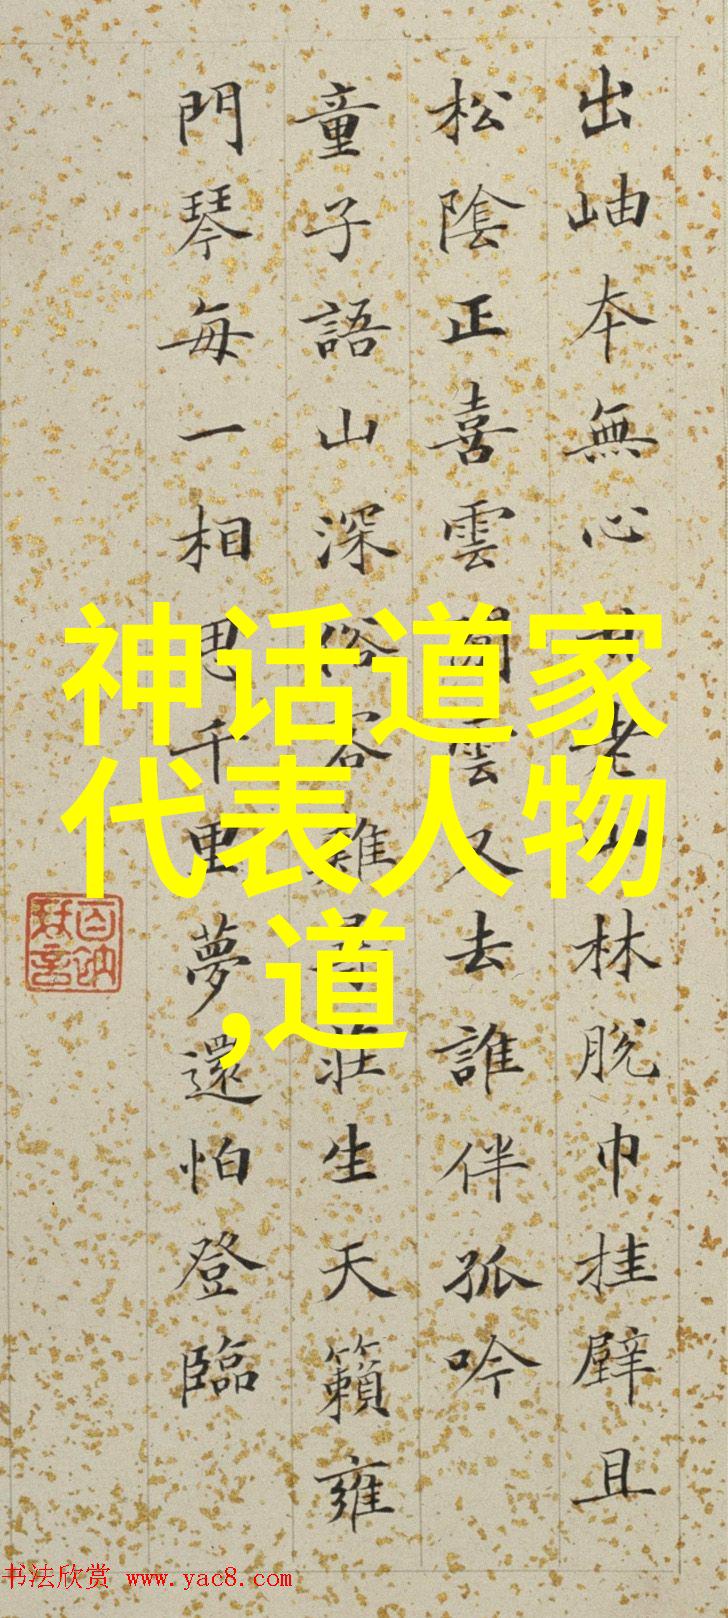 出岫本無心甘老山林脫巾挂壁且
松陰正喜雲閒雲又去誰伴孤吟
童子語山深俗客難尋莊生天籟雍
門琴每一相思千里夢還怕登臨
神话道家
代表人物
,道
书法欣赏 www.yac8.com